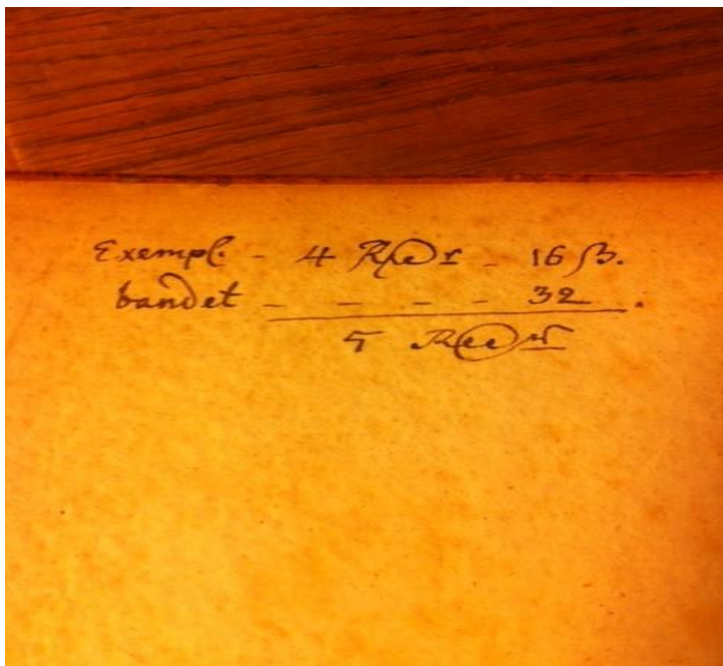 Exempl. - 4 Rdr - 16 ß.
bandet - - - - 32 .
5 Rdr